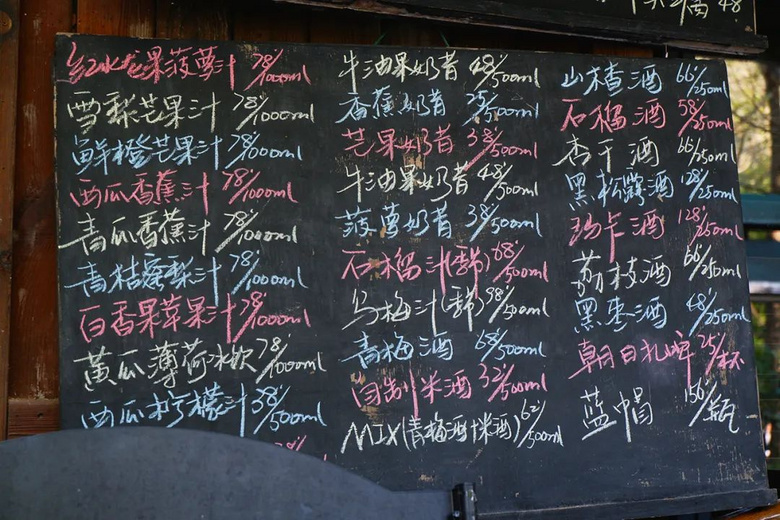 红火龙果菠萝汁 78/1000ml
雪梨芒果汁 78/1000ml
鲜橙芒果汁 78/1000ml
西瓜香蕉汁 78/1000ml
青瓜香蕉汁 78/1000ml
青桔雪梨汁 78/1000ml
百香果苹果汁 78/1000ml
黄瓜薄荷冰饮 78/1000ml
西瓜柠檬汁 38/500ml
牛油果奶昔 48/500ml
香蕉奶昔 25/500ml
芒果奶昔 38/500ml
牛油果奶昔 48/500ml
菠萝奶昔 38/500ml
石榴汁(季节) 68/500ml
乌梅汁 98/500ml
青梅酒 68/500ml
自制米酒 32/500ml
MIX(青梅酒+米酒) 62/500ml
山楂酒 66/250ml
石榴酒 58/250ml
杏干酒 66/250ml
黑松露酒 128/250ml
玛卡酒 128/250ml
荔枝酒 66/250ml
黑枣酒 48/250ml
朝日扎啤 25/杯
蓝帽 156/瓶
48